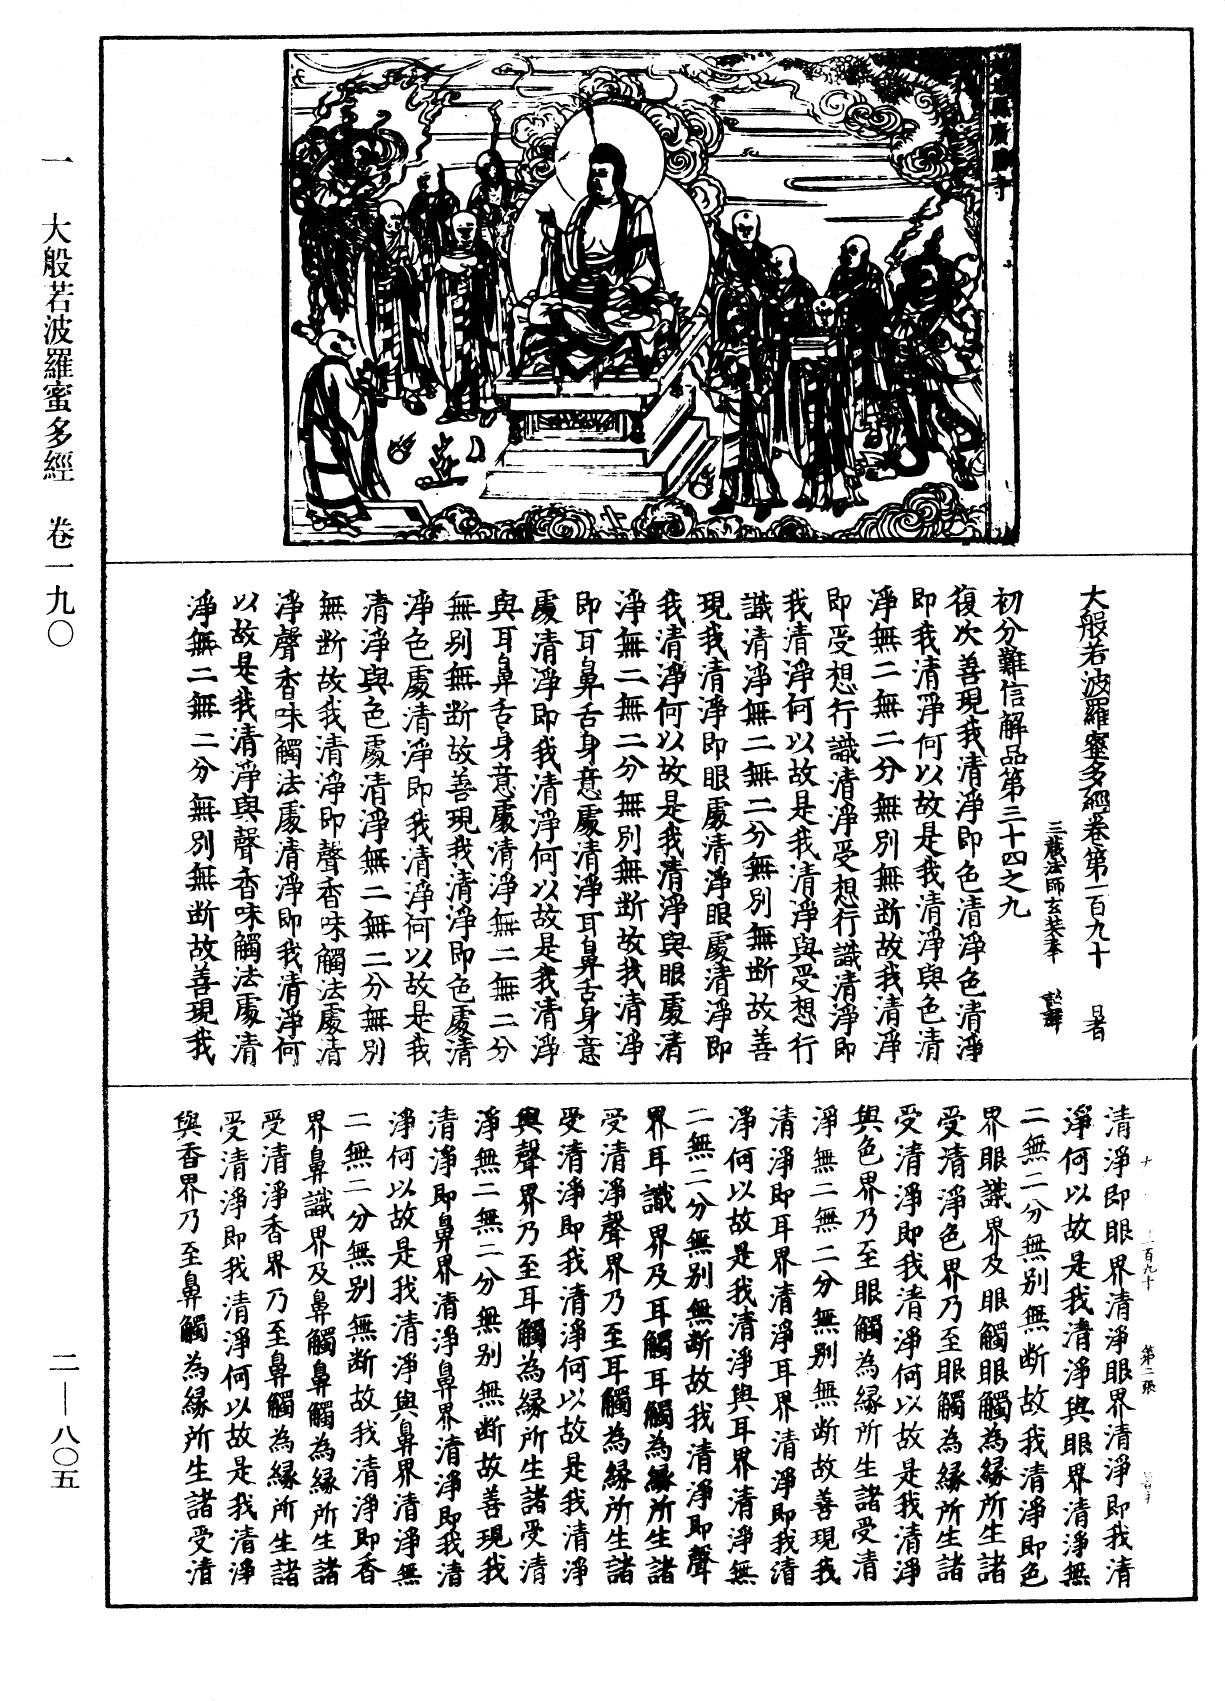 一 大般若波羅蜜多經 卷一九〇
二—八〇五
廣勝寺
大般若波羅蜜多經卷第一百九十
三藏法師玄奘奉 詔譯
初分難信解品第三十四之九
復次善現我清淨即色清淨色清淨
即我清淨何以故是我清淨與色清
淨無二無二分無別無断故我清淨
即受想行識清淨受想行識清淨即
我清淨何以故是我清淨與受想行
識清淨無二無二分無別無断故善
現我清淨即眼處清淨眼處清淨即
我清淨何以故是我清淨與眼處清
淨無二無二分無別無断故我清淨
即耳鼻舌身意處清淨耳鼻舌身意
處清淨即我清淨何以故是我清淨
與耳鼻舌身意處清淨無二無二分
無別無断故善現我清淨即色處清
淨色處清淨即我清淨何以故是我
清淨與色處清淨無二無二分無別
無断故我清淨即聲香味觸法處清
淨聲香味觸法處清淨即我清淨何
以故是我清淨與聲香味觸法處清
淨無二無二分無別無断故善現我
清淨即眼界清淨眼界清淨即我清
淨何以故是我清淨與眼界清淨無
二無二分無別無断故我清淨即色
界眼識界及眼觸眼觸為緣所生諸
受清淨色界乃至眼觸為緣所生諸
受清淨即我清淨何以故是我清淨
與色界乃至眼觸為緣所生諸受清
淨無二無二分無別無断故善現我
清淨即耳界清淨耳界清淨即我清
淨何以故是我清淨與耳界清淨無
二無二分無別無断故我清淨即聲
界耳識界及耳觸耳觸為緣所生諸
受清淨聲界乃至耳觸為緣所生諸
受清淨即我清淨何以故是我清淨
與聲界乃至耳觸為緣所生諸受清
淨無二無二分無別無断故善現我
清淨即鼻界清淨鼻界清淨即我清
淨何以故是我清淨與鼻界清淨無
二無二分無別無断故我清淨即香
界鼻識界及鼻觸鼻觸為緣所生諸
受清淨香界乃至鼻觸為緣所生諸
受清淨即我清淨何以故是我清淨
與香界乃至鼻觸為緣所生諸受清
百九十 第二張